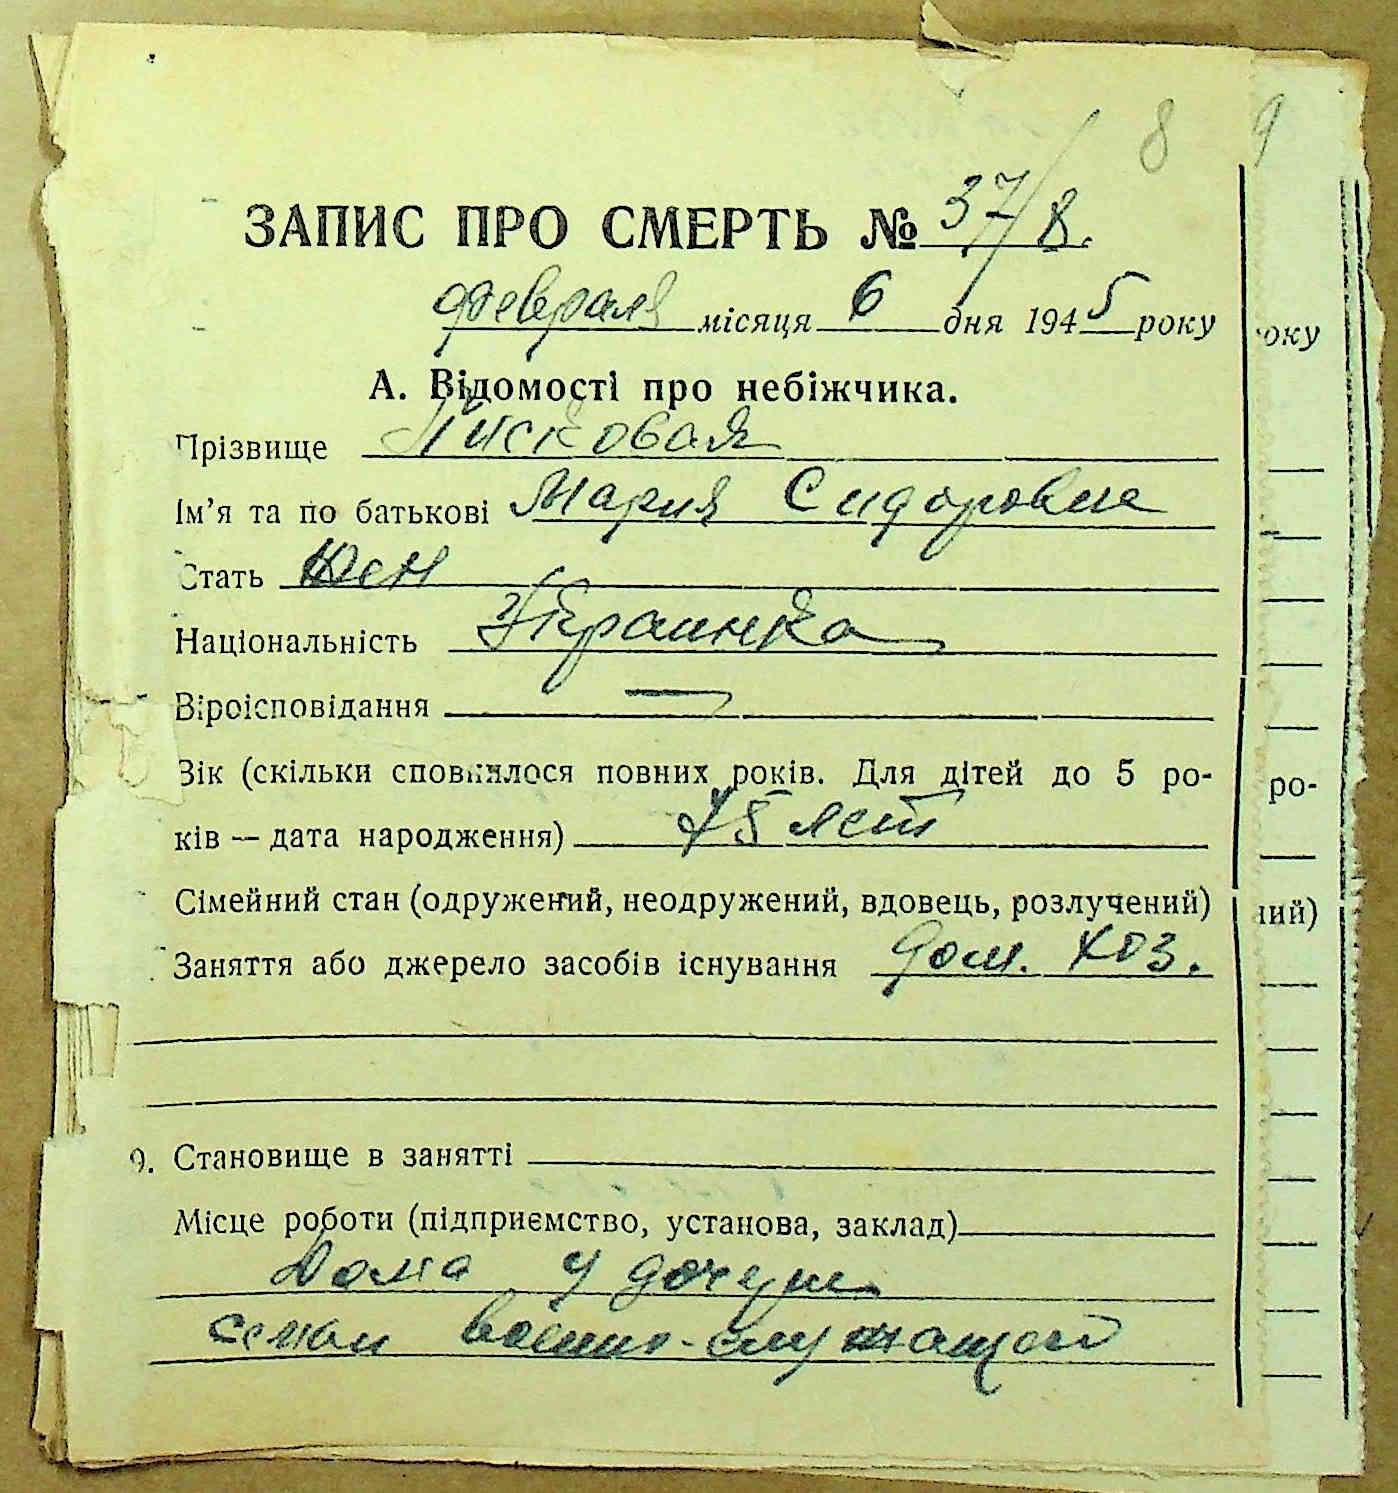 8 9
ЗАПИС ПРО СМЕРТЬ № 37/8.
февраля місяця 6 дня 1945 року
оку
А. Відомості про небіжчика.
Прізвище Писковая
Ім’я та по батькові Мария Сидоровна
Стать Жен
Національність Украинка
Віроісповідання —
Вік (скільки сповнилося повних років. Для дітей до 5 ро-
ро-
ків — дата народження) 75 лет
Сімейний стан (одружений, неодружений, вдовець, розлучений)
ний)
Заняття або джерело засобів існування дом. хоз.
9. Становище в занятті
Місце роботи (підприємство, установа, заклад)
Дома у дочери
семьи военно-служащего